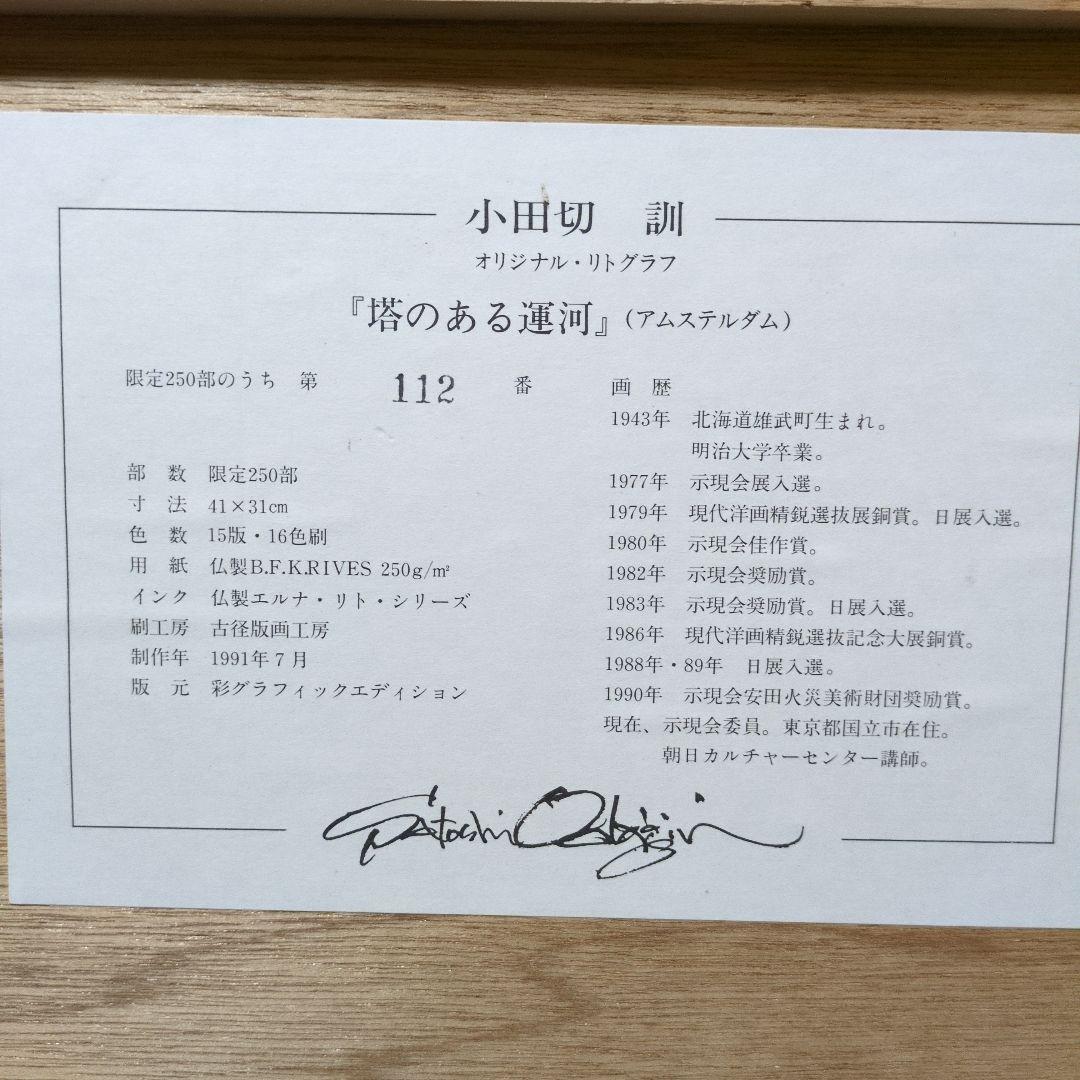 小田切 訓
オリジナル・リトグラフ
『塔のある運河』(アムステルダム)
限定250部のうち 第 112 番
部 数 限定250部
寸 法 41×31cm
色 数 15版・16色刷
用 紙 仏製B.F.K.RIVES 250g/㎡
インク 仏製エルナ・リト・シリーズ
刷工房 古径版画工房
制作年 1991年7月
版 元 彩グラフィックエディション
画 歴
1943年 北海道雄武町生まれ。
明治大学卒業。
1977年 示現会展入選。
1979年 現代洋画精鋭選抜展銅賞。日展入選。
1980年 示現会佳作賞。
1982年 示現会奨励賞。
1983年 示現会奨励賞。日展入選。
1986年 現代洋画精鋭選抜記念大展銅賞。
1988年・89年 日展入選。
1990年 示現会安田火災美術財団奨励賞。
現在、示現会委員。東京都国立市在住。
朝日カルチャーセンター講師。
Satoshi Otagiri